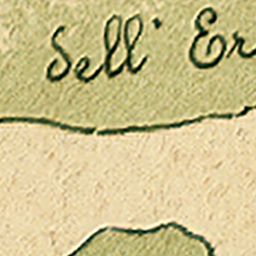 dell' Er